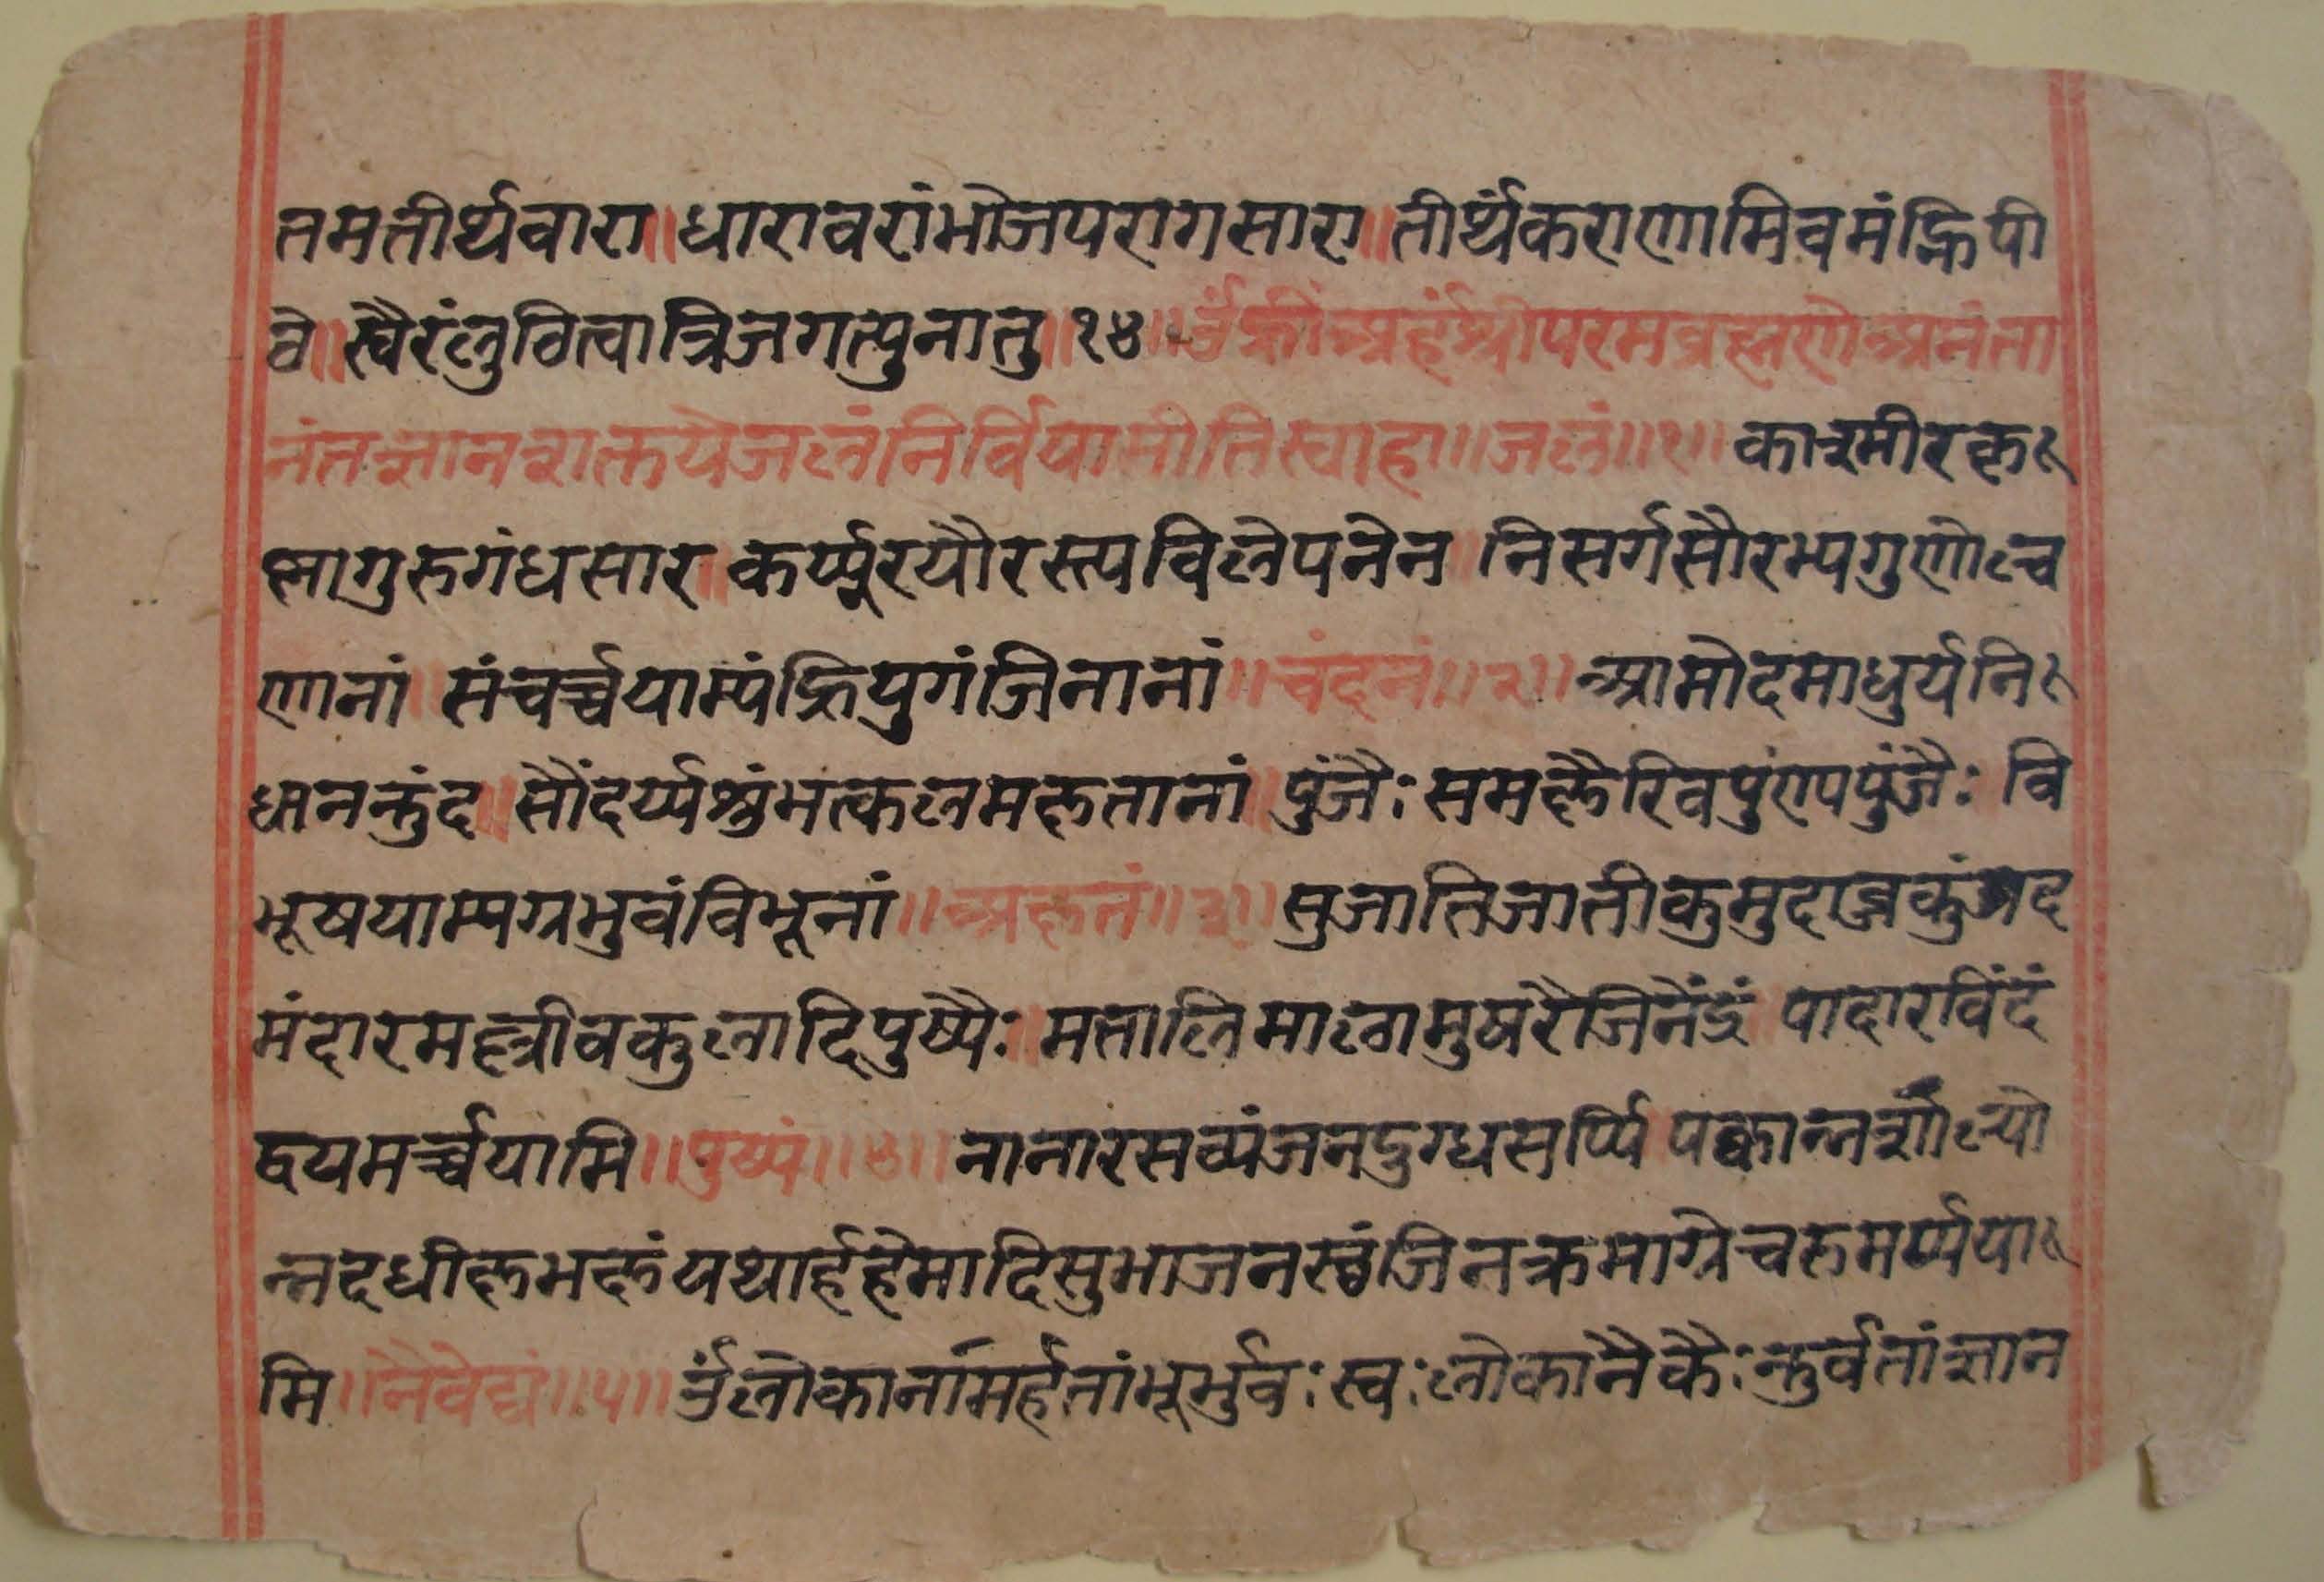 तमतीर्थवारा॥धारावरांभोजपरागसारा॥तीर्थंकराणामिवमंह्रिपी
ठे॥स्वैरंलुठित्वात्रिजगत्पुनातु॥१४॥ॐह्रींअर्हंश्रीपरमब्रह्मणेअनंता
नंतज्ञानशक्तयेजलंनिर्विपामीतिस्वाहा॥जलं॥१॥काश्मीरकृ
ष्णागुरुगंधसार॥कर्प्पूरपौरस्त्पविलेपनेन॥निसर्गसौरभ्पगुणोल्व
णानां॥संचर्च्चयाम्पंह्रियुगंजिनानां॥चंदनं॥२॥आमोदमाधुर्यनि
धानन्कुंद॥सौंदर्य्यशुंभत्कलमक्षतानां॥पुंजैःसमक्षैरिवपुंण्पपुंजैः॥वि
भूषयाम्पग्रभुवंविभूनां॥अक्षतं॥३॥सुजातिजातीकुमुदाब्जकुंजद
मंदारमल्लीवकुलादिपुष्पैः॥मत्तालिमालामुषरैजिनेंद्रं॥पादारविंदं
द्वयमर्च्चयामि॥पुष्पं॥४॥नानारसव्यंजनदुग्धसर्प्पि॥पक्वान्नशाल्यो
न्नदधीक्षभक्षंयथार्हहेमादिसुभाजनस्थंजिनक्रमाग्रेचरुमर्प्पया
मि॥नैवेद्यं॥५॥ॐलोकानामर्हतांभूर्भुवःस्वःलोकानेकैःन्कुर्वतांज्ञान